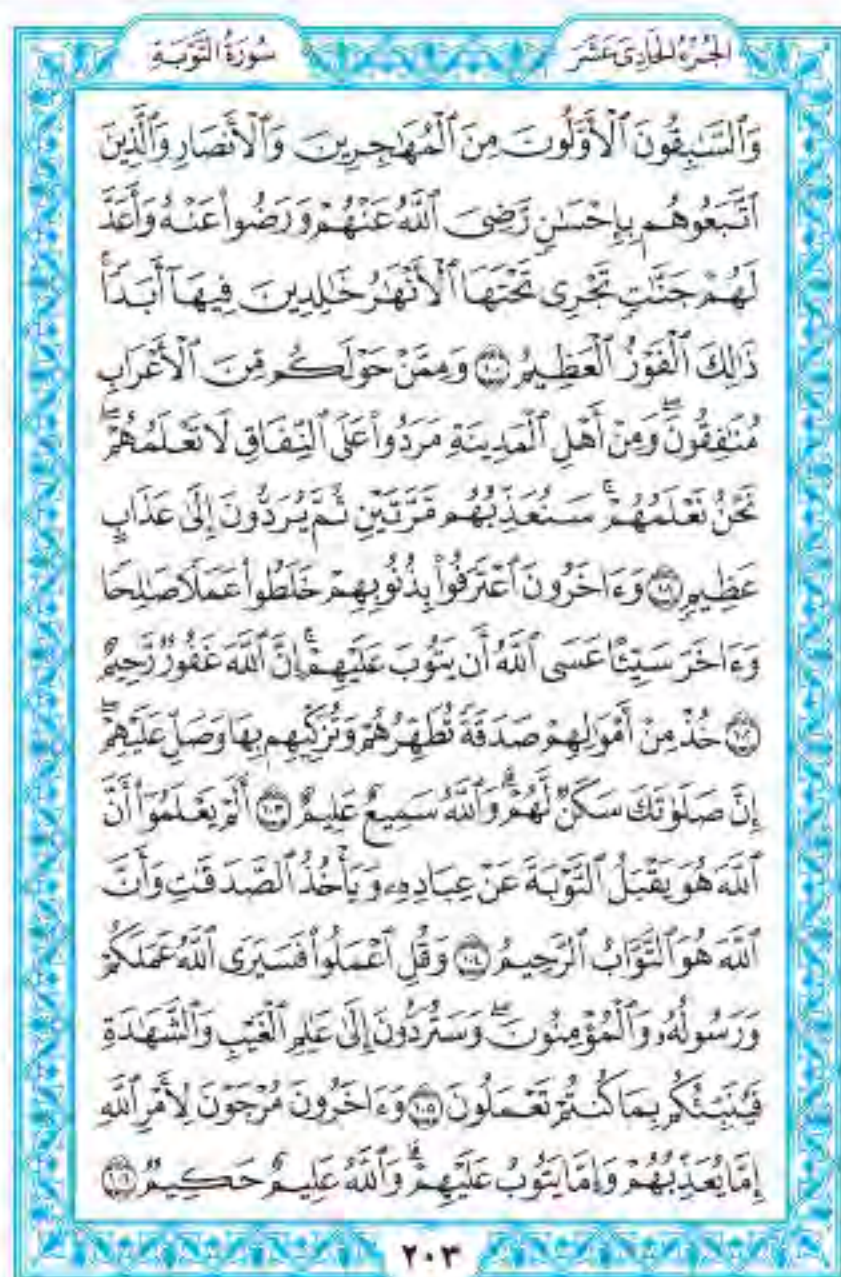 الجزء الحادي عشر
سورة التوبة
وَٱلسَّـٰبِقُونَ ٱلْأَوَّلُونَ مِنَ ٱلْمُهَـٰجِرِينَ وَٱلْأَنصَارِ وَٱلَّذِينَ
ٱتَّبَعُوهُم بِإِحْسَـٰنٍ رَّضِىَ ٱللَّهُ عَنْهُمْ وَرَضُوا۟ عَنْهُ وَأَعَدَّ
لَهُمْ جَنَّـٰتٍ تَجْرِى تَحْتَهَا ٱلْأَنْهَـٰرُ خَـٰلِدِينَ فِيهَآ أَبَدًۭا ۚ
ذَٰلِكَ ٱلْفَوْزُ ٱلْعَظِيمُ ١٠٠ وَمِمَّنْ حَوْلَكُم مِّنَ ٱلْأَعْرَابِ
مُنَـٰفِقُونَ ۖ وَمِنْ أَهْلِ ٱلْمَدِينَةِ مَرَدُوا۟ عَلَى ٱلنِّفَاقِ لَا تَعْلَمُهُمْ ۖ
نَحْنُ نَعْلَمُهُمْ ۚ سَنُعَذِّبُهُم مَّرَّتَيْنِ ثُمَّ يُرَدُّونَ إِلَىٰ عَذَابٍ
عَظِيمٍۢ ١٠١ وَءَاخَرُونَ ٱعْتَرَفُوا۟ بِذُنُوبِهِمْ خَلَطُوا۟ عَمَلًۭا صَـٰلِحًۭا
وَءَاخَرَ سَيِّئًا عَسَى ٱللَّهُ أَن يَتُوبَ عَلَيْهِمْ ۚ إِنَّ ٱللَّهَ غَفُورٌۭ رَّحِيمٌ
١٠٢ خُذْ مِنْ أَمْوَٰلِهِمْ صَدَقَةًۭ تُطَهِّرُهُمْ وَتُزَكِّيهِم بِهَا وَصَلِّ عَلَيْهِمْ ۖ
إِنَّ صَلَوٰتَكَ سَكَنٌۭ لَّهُمْ ۗ وَٱللَّهُ سَمِيعٌ عَلِيمٌ ١٠٣ أَلَمْ يَعْلَمُوٓا۟ أَنَّ
ٱللَّهَ هُوَ يَقْبَلُ ٱلتَّوْبَةَ عَنْ عِبَادِهِۦ وَيَأْخُذُ ٱلصَّدَقَـٰتِ وَأَنَّ
ٱللَّهَ هُوَ ٱلتَّوَّابُ ٱلرَّحِيمُ ١٠٤ وَقُلِ ٱعْمَلُوا۟ فَسَيَرَى ٱللَّهُ عَمَلَكُمْ
وَرَسُولُهُۥ وَٱلْمُؤْمِنُونَ ۖ وَسَتُرَدُّونَ إِلَىٰ عَـٰلِمِ ٱلْغَيْبِ وَٱلشَّهَـٰدَةِ
فَيُنَبِّئُكُم بِمَا كُنتُمْ تَعْمَلُونَ ١٠٥ وَءَاخَرُونَ مُرْجَوْنَ لِأَمْرِ ٱللَّهِ
إِمَّا يُعَذِّبُهُمْ وَإِمَّا يَتُوبُ عَلَيْهِمْ ۗ وَٱللَّهُ عَلِيمٌ حَكِيمٌۭ ١٠٦
٢٠٣